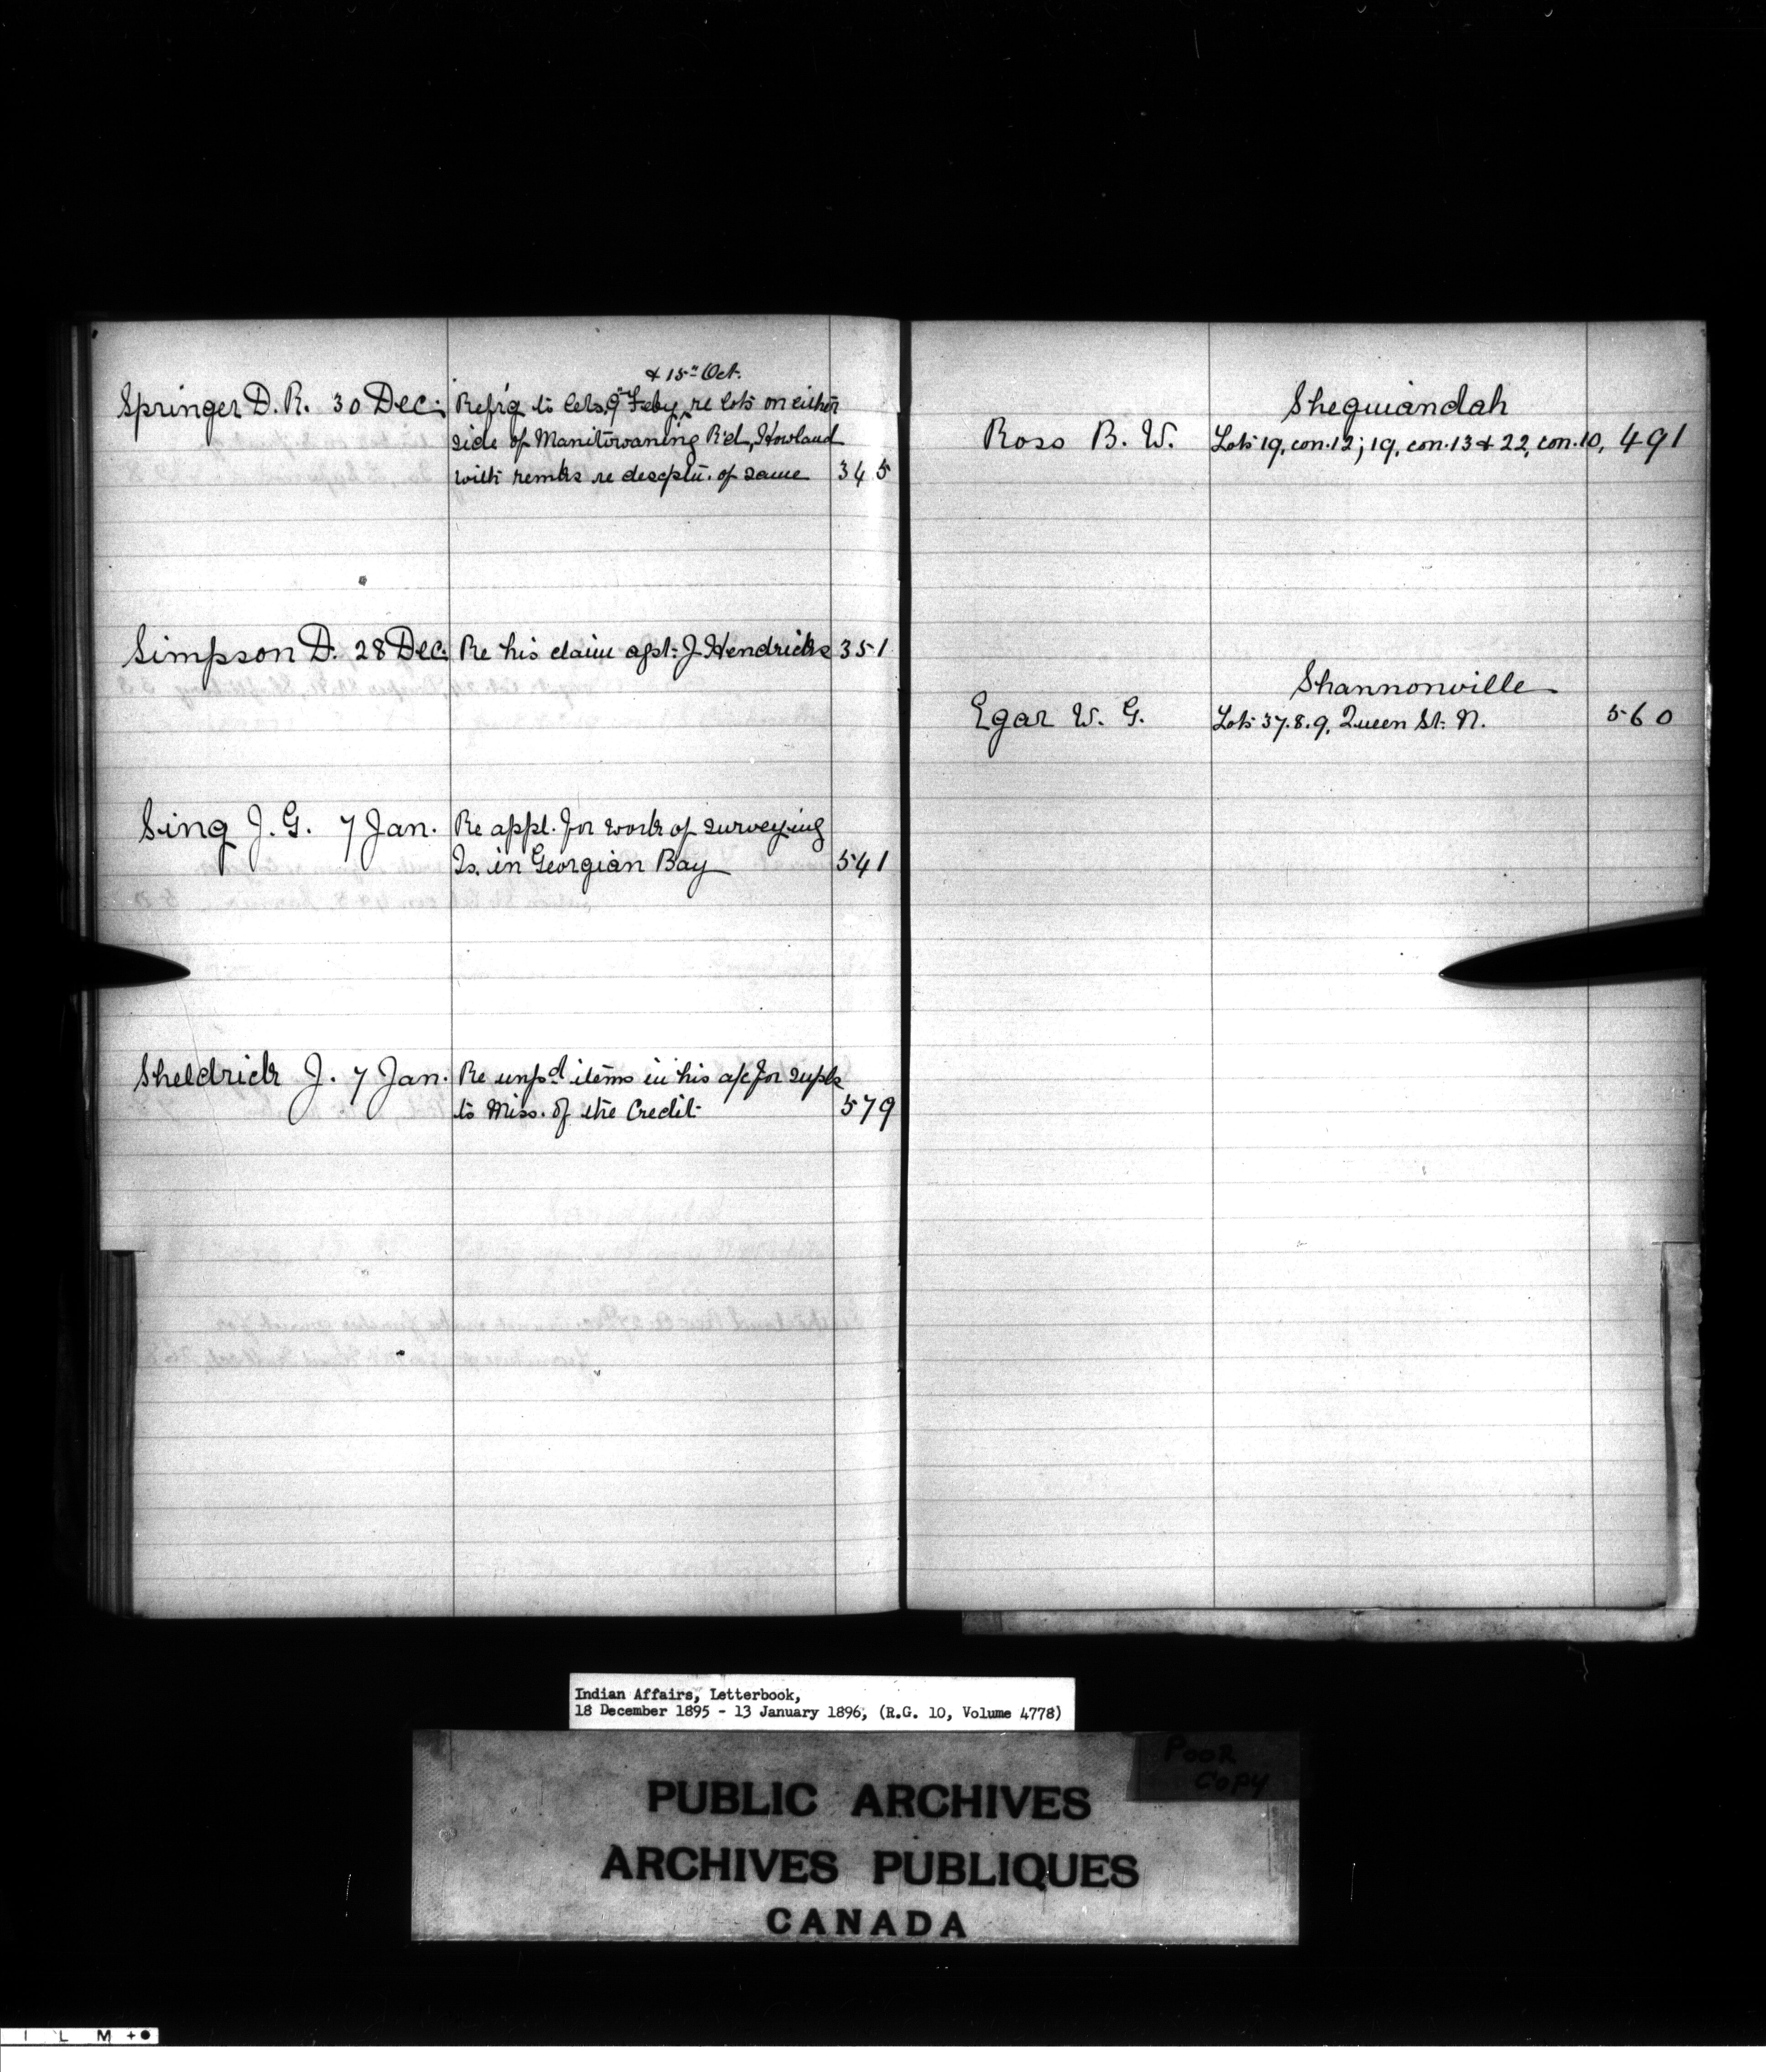 & 15" Oct.
Springer D. R. 30 Dec. Refr'g to lets. 9" Feby, re lots on either
side of Manitowaning R'd, Howland
with remks re descptn. of same 345
Simpson D. 28 Dec. Re his claim agst. J. Hendricks 351
Sing J. G. 7 Jan. Re appl. for work of surveying
Is. in Georgian Bay 541
Sheldrick J. 7 Jan. Re unp'd items in his a/c for supls
to Miss. of the Credit 579
Sheguiandah
Ross B. W. Lots 19, con. 12; 19, con. 13 & 22, con. 10, 491
Shannonville
Egar W. G. Lots 37.8.9, Queen St. N. 560
Indian Affairs, Letterbook,
18 December 1895 - 13 January 1896, (R.G. 10, Volume 4778)
POOR
COPY
PUBLIC ARCHIVES
ARCHIVES PUBLIQUES
CANADA
I L M +●